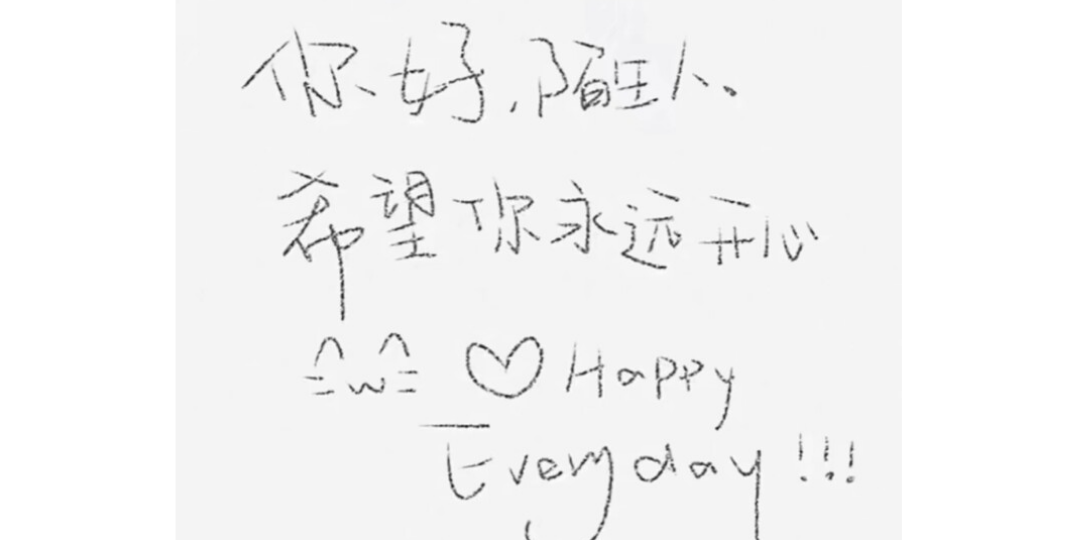 你好,陌生人。
希望你永远开心
=^w^= ♡ Happy
Everyday!!!